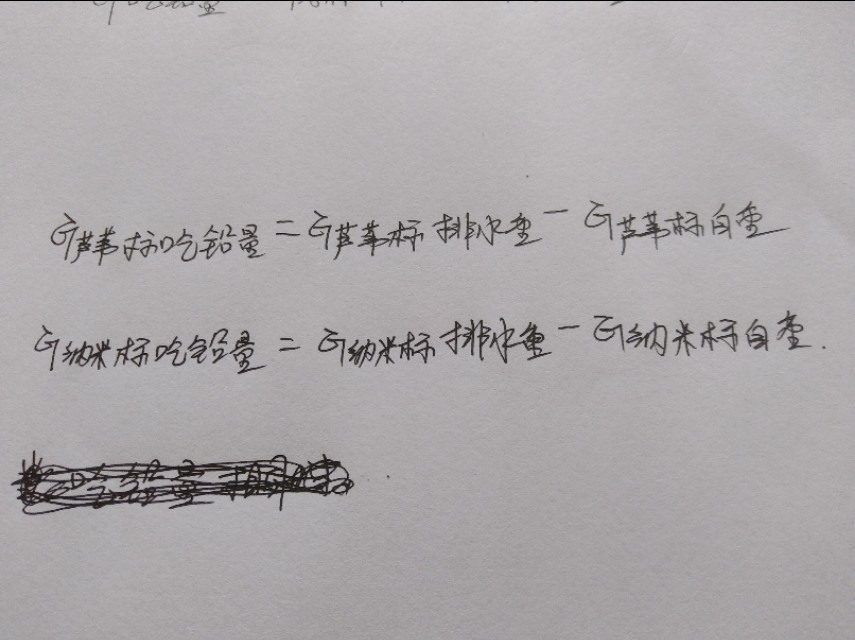 G芦苇标吃铅量=G芦苇标排水重-G芦苇标自重
G纳米标吃铅量=G纳米标排水重-G纳米标自重.